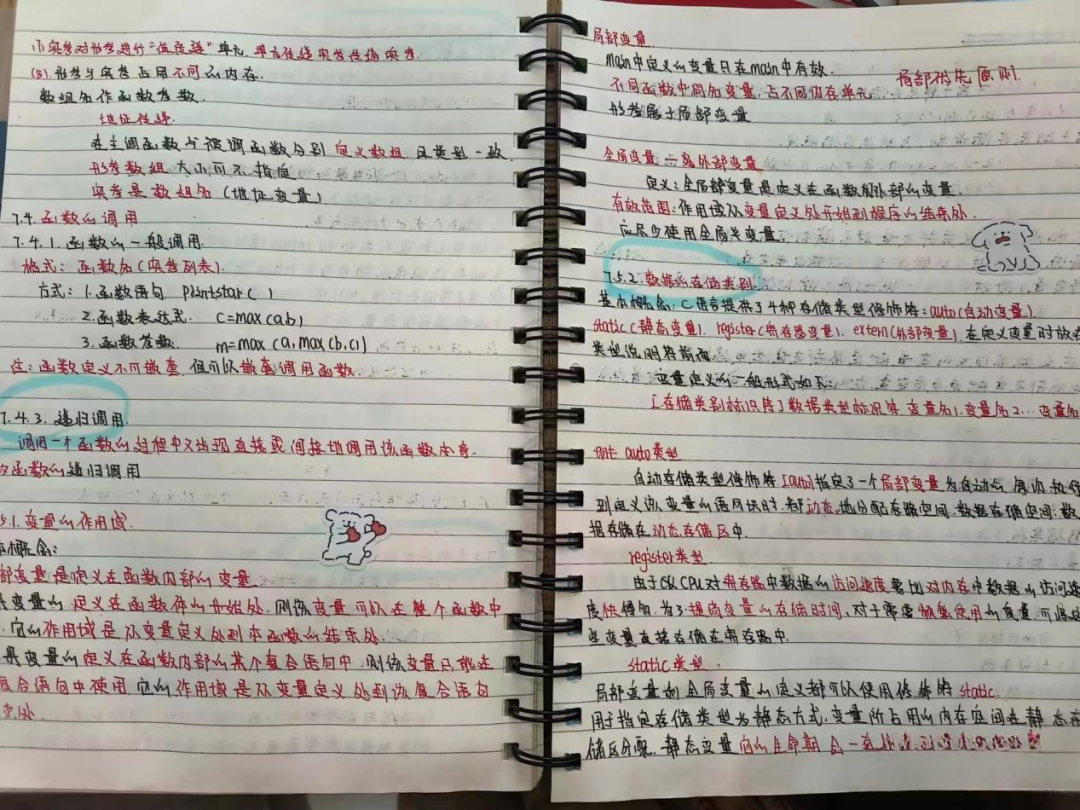 (7)实参对形参进行"值传递"单元,单向传递实参传给实参.
(8).形参与实参占用不同的内存.
数组名作函数参数.
地址传递.
在主调函数与被调函数分别定义数组且类型一致.
形参数组大小可不指定
实参是数组名(地址变量)
7.4.函数的调用
7.4.1.函数的一般调用.
格式:函数名(实参列表).
方式:1.函数语句 printstar( )
2.函数表达式. c=max(ab)
3.函数参数. m=max(a,max(b,c))
注:函数定义不可嵌套,但可以嵌套调用函数.
7.4.3.递归调用.
调用一个函数的过程中又出现直接或间接地调用该函数本身.
函数的递归调用
5.1.变量的作用域.
概念:
部变量是定义在函数内部的变量.
变量的定义在函数体的开始处,则该变量可以在整个函数中
它的作用域是从变量定义处到本函数的结束处.
果变量的定义在函数内部的某个复合语句中,则该变量只能在
复合语句中使用.它的作用域是从变量定义处到该复合语句
束处.
局部变量
main中定义的变量只在main中有效.
局部优先原则.
不同函数中同名变量,占不同内存单元
形参属于局部变量
全局变量—外部变量
定义:全局部变量是定义在函数外部的变量.
有效范围:作用域从变量定义处开始到程序的结束处.
应尽少使用全局变量.
7.5.2.数据的存储类别
基本概念:C语言提供了4种存储类型修饰符:auto(自动变量).
static(静态变量).register(寄存器变量).extern(外部变量).在定义变量时放在
类型说明符前面
变量定义的一般形式如下:
[存储类别标识符]数据类型标识符 变量名1.变量名2...变量名
auto类型
自动存储类型修饰符[auto]指定了一个局部变量为自动的,每次执行
到定义该变量的语句块时,都动态地分配存储空间.数据存储空间.数
据存储在动态存储区中.
register类型.
由于CPU对寄存器中数据的访问速度要比对内存中数据的访问速
度快得多,为了提高变量的存储时间,对于需要频繁使用的变量,可将这
些变量直接存储在寄存器中.
static类型.
局部变量和全局变量的定义都可以使用修饰符static.
用于指定存储类型为静态方式,变量所占用的内存空间在静态存
储区分配.静态变量它的生命期会一直